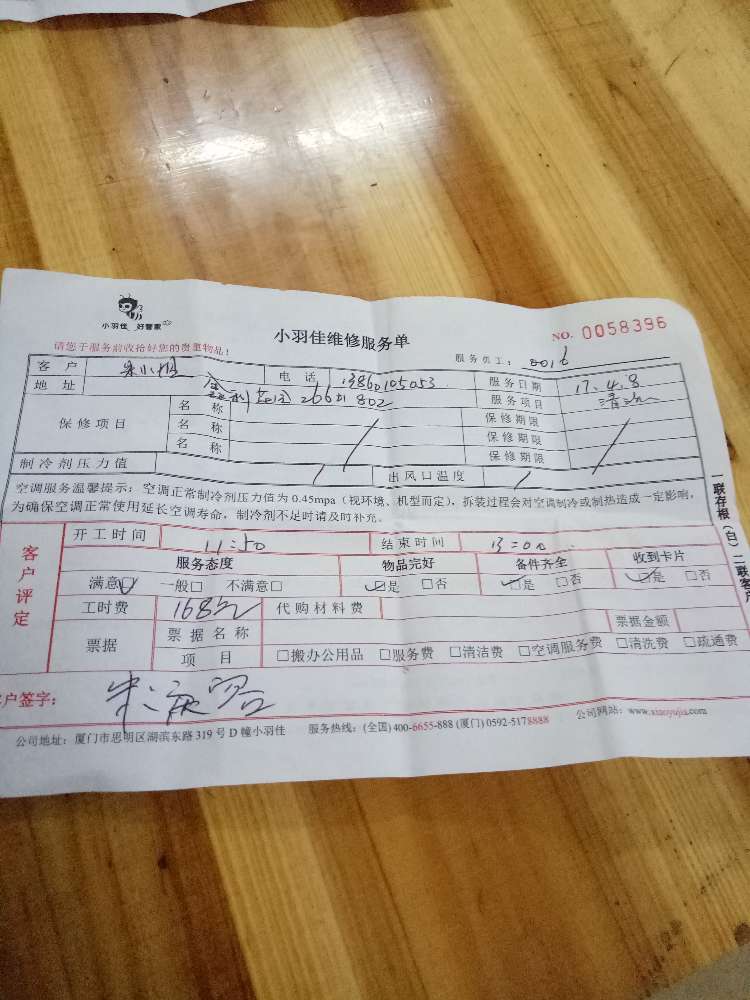 小羽佳 好管家
小羽佳维修服务单
NO. 0058396
请您于服务前收拾好您的贵重物品!
服务员工:
客户 朱小姐 电话 13860105053 服务日期 17.4.8
地址 金 花园 266 802 服务项目 清洗
保修项目 名称 保修期限
名称 保修期限
名称 保修期限
制冷剂压力值 / 出风口温度 /
空调服务温馨提示:空调正常制冷剂压力值为 0.45mpa(视环境、机型而定),拆装过程会对空调制冷或制热造成一定影响,
为确保空调正常使用延长空调寿命,制冷剂不足时请及时补充。
客户评定
开工时间 11:50 结束时间 13:00
服务态度 物品完好 备件齐全 收到卡片
满意☑ 一般□ 不满意□ ☑是 □否 ☑是 □否 ☑是 □否
工时费 168元 代购材料费
票据 票据名称 票据金额
项目 □搬办公用品 □服务费 □清洁费 □空调服务费 □清洗费 □疏通费
户签字:
公司地址:厦门市思明区湖滨东路 319 号 D 幢小羽佳 服务热线:(全国) 400-6655-888 (厦门) 0592-5178888 公司网站:www.xiaoyujia.com
一联存根(白) 二联客户